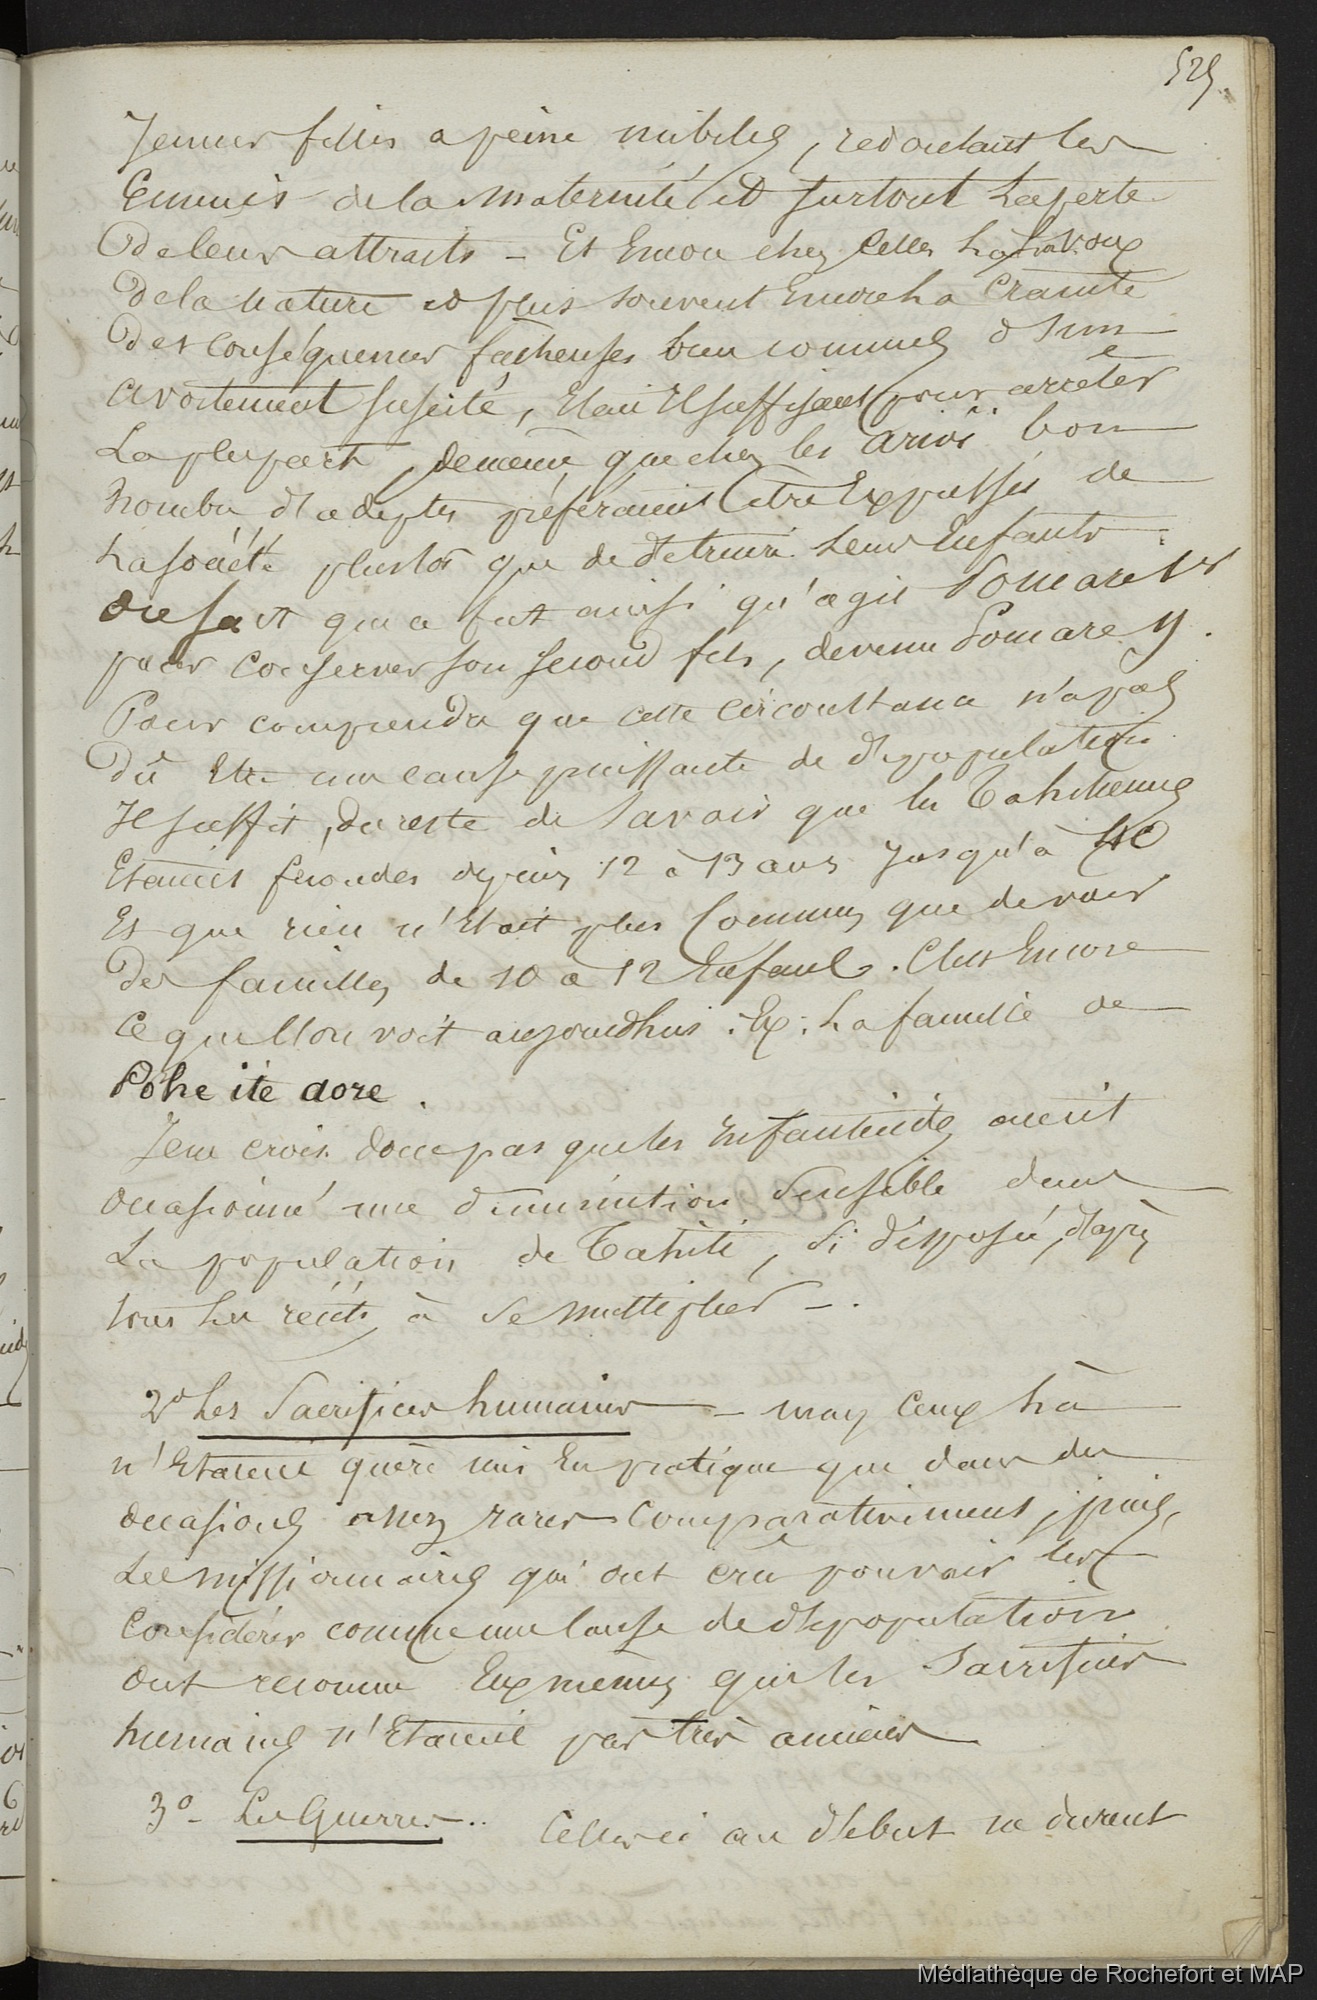 525.
Jeunes filles a peine nubiles, redoutant les
Ennuis de la maternité et surtout la perte
De leurs attraits – Et Encore chez celles la la voix
De la nature et plus souvent Encore la crainte
Des conséquences fâcheuses bien connues d'un
avortement suscité, Etait Il suffisant pour arrêter
La plupart, de même que chez les ariois bon
nombre d'adeptes préféraient être Expulsés de
la société plustot que de détruire leurs Enfants.
ce fait qui a fait ainsi qu'agit Pomare 1er
pour conserver son second fils, devenu Pomare II.
Pour comprendre que cette circonstance n'a pas
Dû Etre une cause puissante de dépopulation
Il suffit, du reste de savoir que les Tahitiennes
Etaient fécondes depuis 12 à 13 ans jusqu'à 40
Et que rien n'Etait plus commun que de voir
Des familles de 10 a 12 Enfants. C'est Encore
ce que l'on voit aujourdhui. Ex: la famille de
Pohe ite aore.
Je ne crois donc pas que les Infanticides aient
occasionné une diminution sensible dans
La population de Tahiti, si disposée, d'après
tous les récits, à se multiplier –.
2° Les Sacrifices humains – mais ceux là
n'Etaient guère mis En pratique que dans des
occasions assez rares comparativement, puis,
Les missionnaires qui ont crû pouvoir les
considérer comme une cause de dépopulation
ont reconnu Eux mêmes que les Sacrifices
humains n'Etaient pas très anciens
3° – Les Guerres.. Celles ci au début ne durent
Médiathèque de Rochefort et MAP